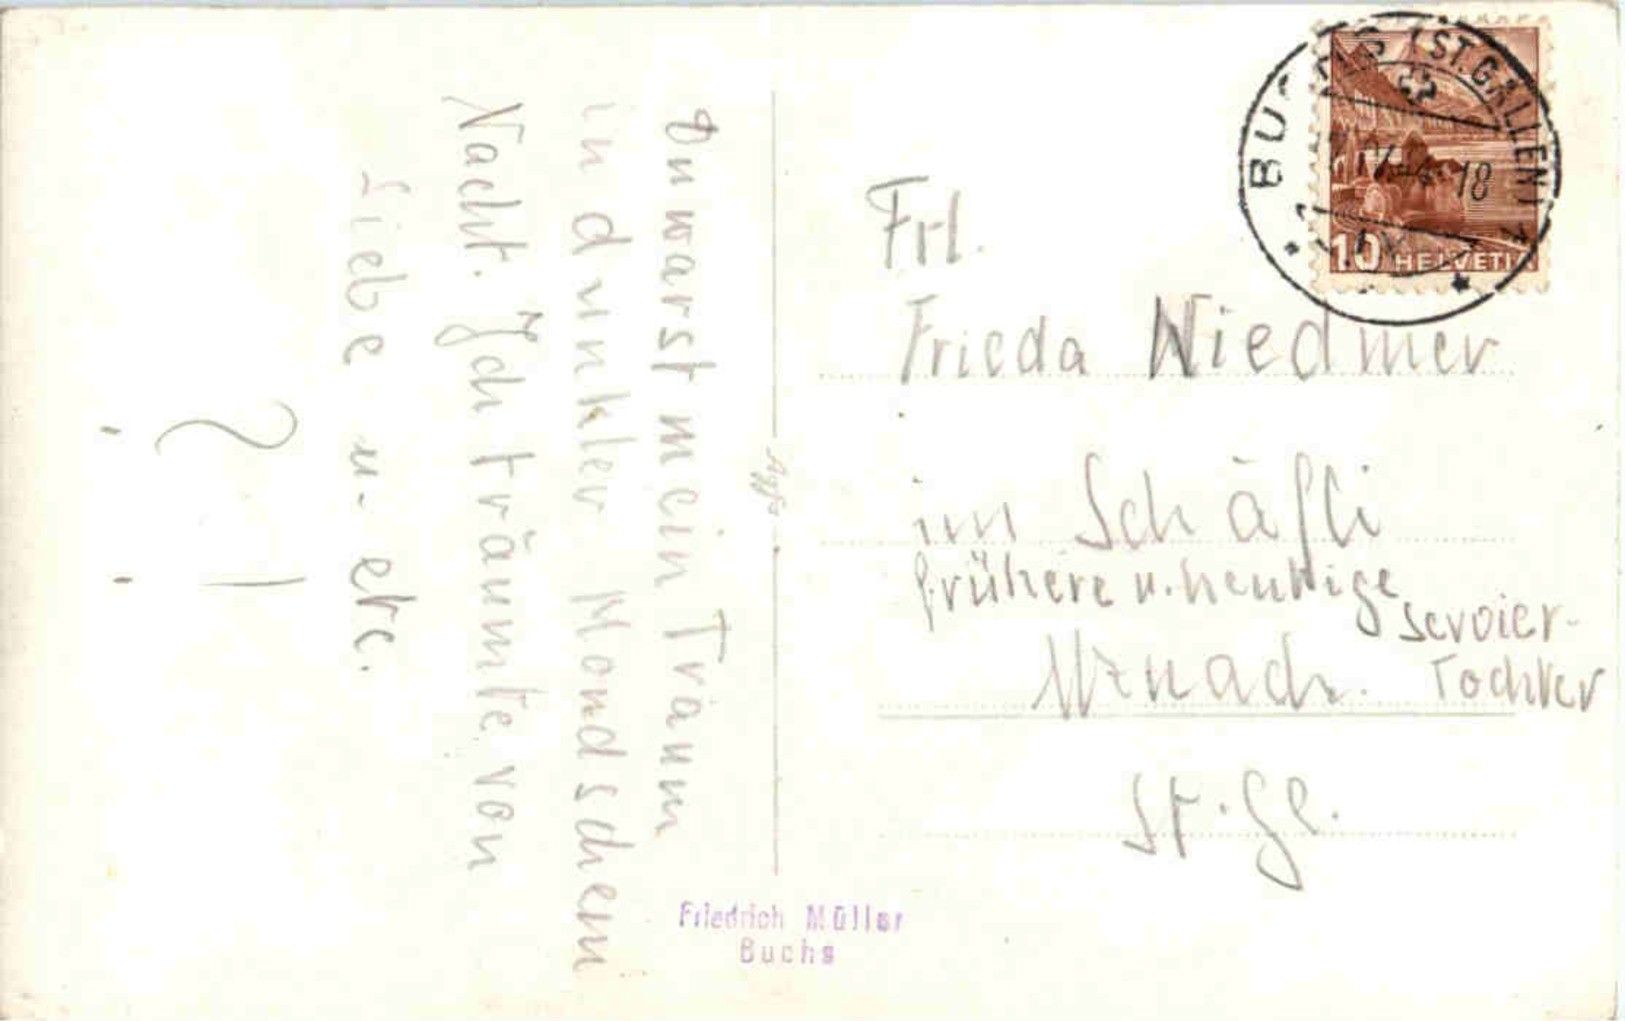 Du warst mein Traum
in dunkler Mondschein
Nacht. Ich träumte von
Liebe u. etc.
? !
BUCHS (ST. GALLEN)
18
10 HELVETIA
Frl.
Frieda Niedmer
im Schäfli
frühere u. heuttige
servoier-
Tochter
Uznach.
St. Gl.
Friedrich Müller
Buchs